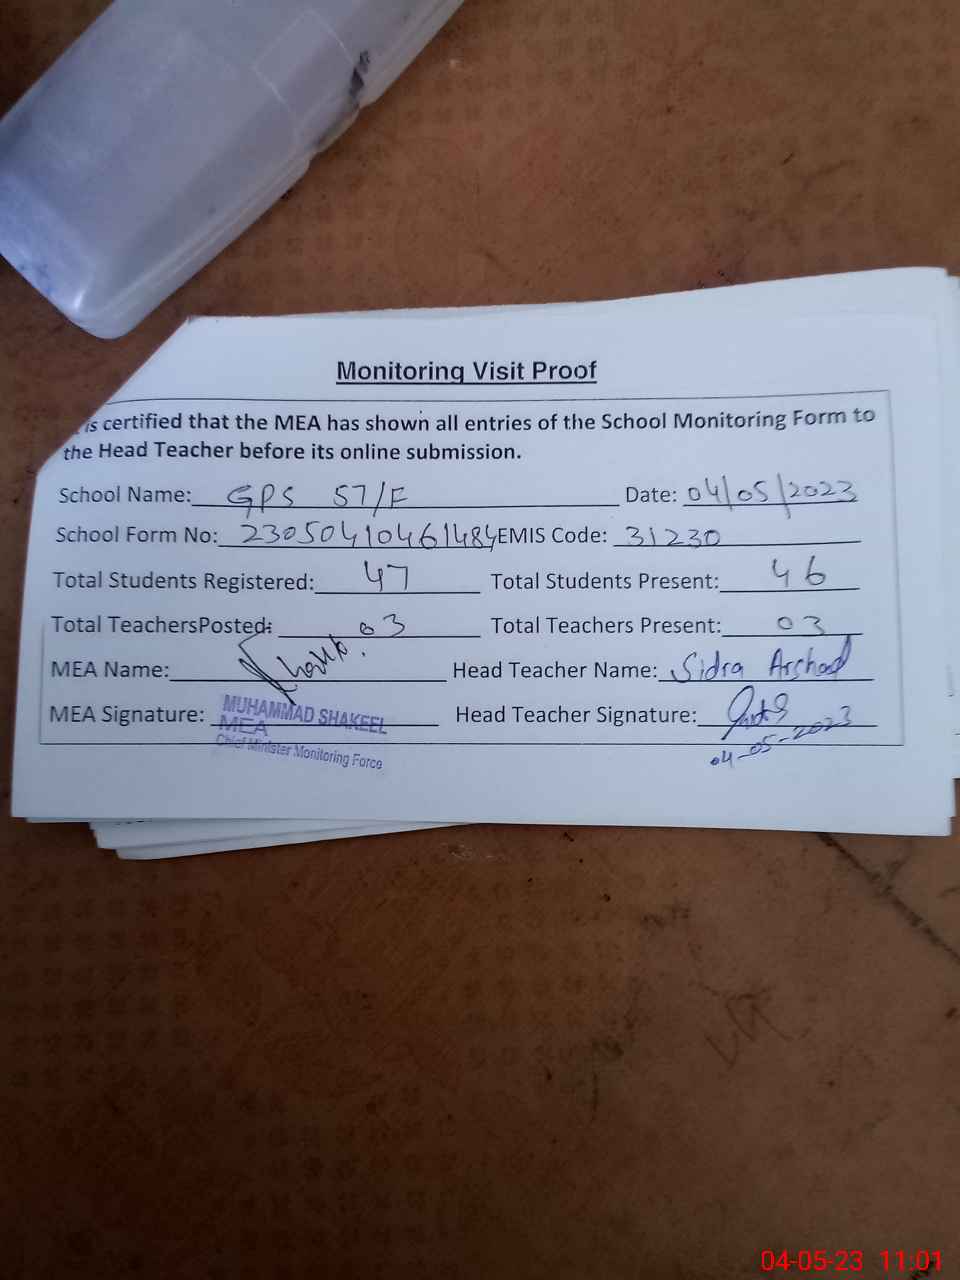 Monitoring Visit Proof
is certified that the MEA has shown all entries of the School Monitoring Form to
the Head Teacher before its online submission.
School Name: GPS 57/F Date: 04/05/2023
School Form No: 23050410461484 EMIS Code: 31230
Total Students Registered: 47 Total Students Present: 46
Total TeachersPosted: 03 Total Teachers Present: 03
MEA Name: Head Teacher Name: Sidra Arshad
MEA Signature: MUHAMMAD SHAKEEL Head Teacher Signature:
MEA
Chief Minister Monitoring Force
04-05-2023
04-05-23 11:01